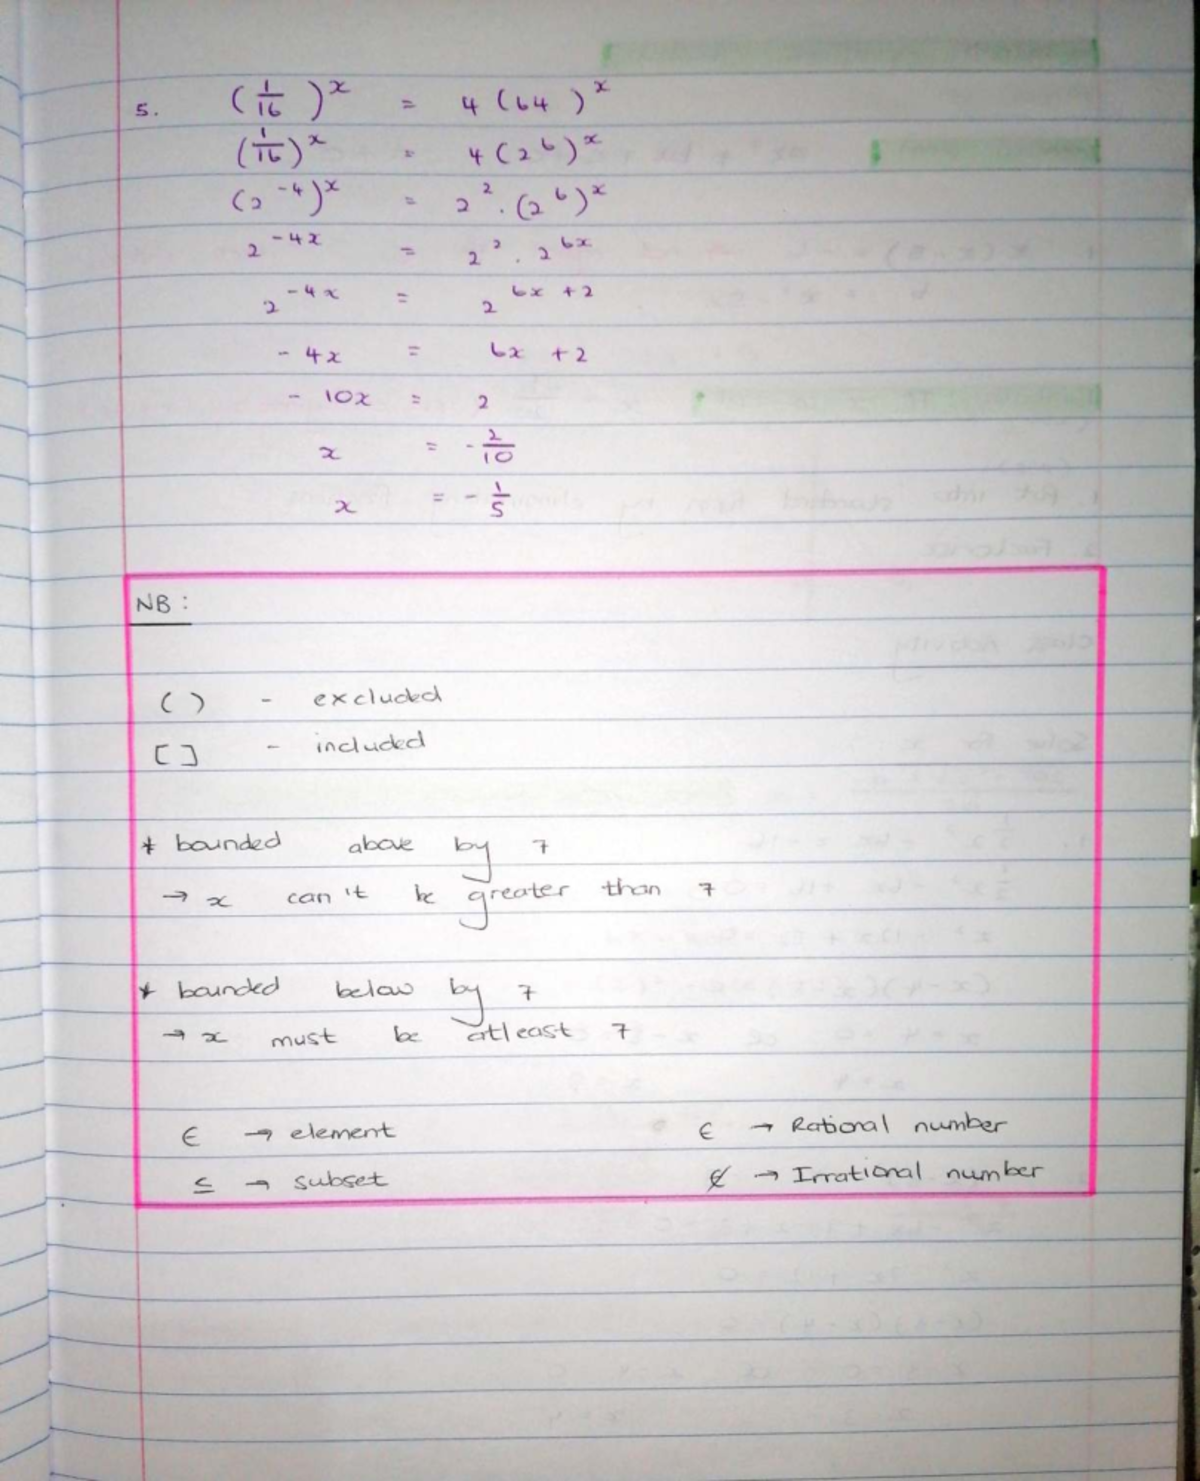 5. (1/16)^x = 4(64)^x
(1/16)^x = 4(2^6)^x
(2^-4)^x = 2^2 . (2^6)^x
2^-4x = 2^2 . 2^6x
2^-4x = 2^6x+2
-4x = 6x + 2
- 10x = 2
x = -2/10
x = -1/5
NB :
( ) - excluded
[ ] - included
* bounded above by 7
→ x can't be greater than 7
* bounded below by 7
→ x must be atleast 7
∈ → element ∈ → Rational number
⊆ → subset ∉ → Irrational number